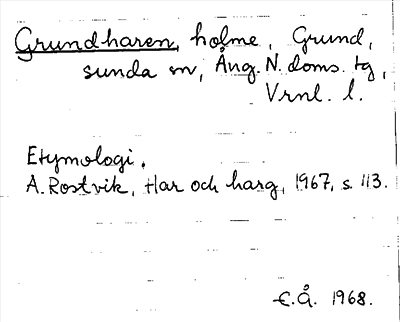 Grundharen, holme, Grund,
sunda sn, Ång. N. doms. tg,
Vrnl. l.
Etymologi.
A. Rostvik, Har och harg, 1967, s. 113.
E.Å. 1968.